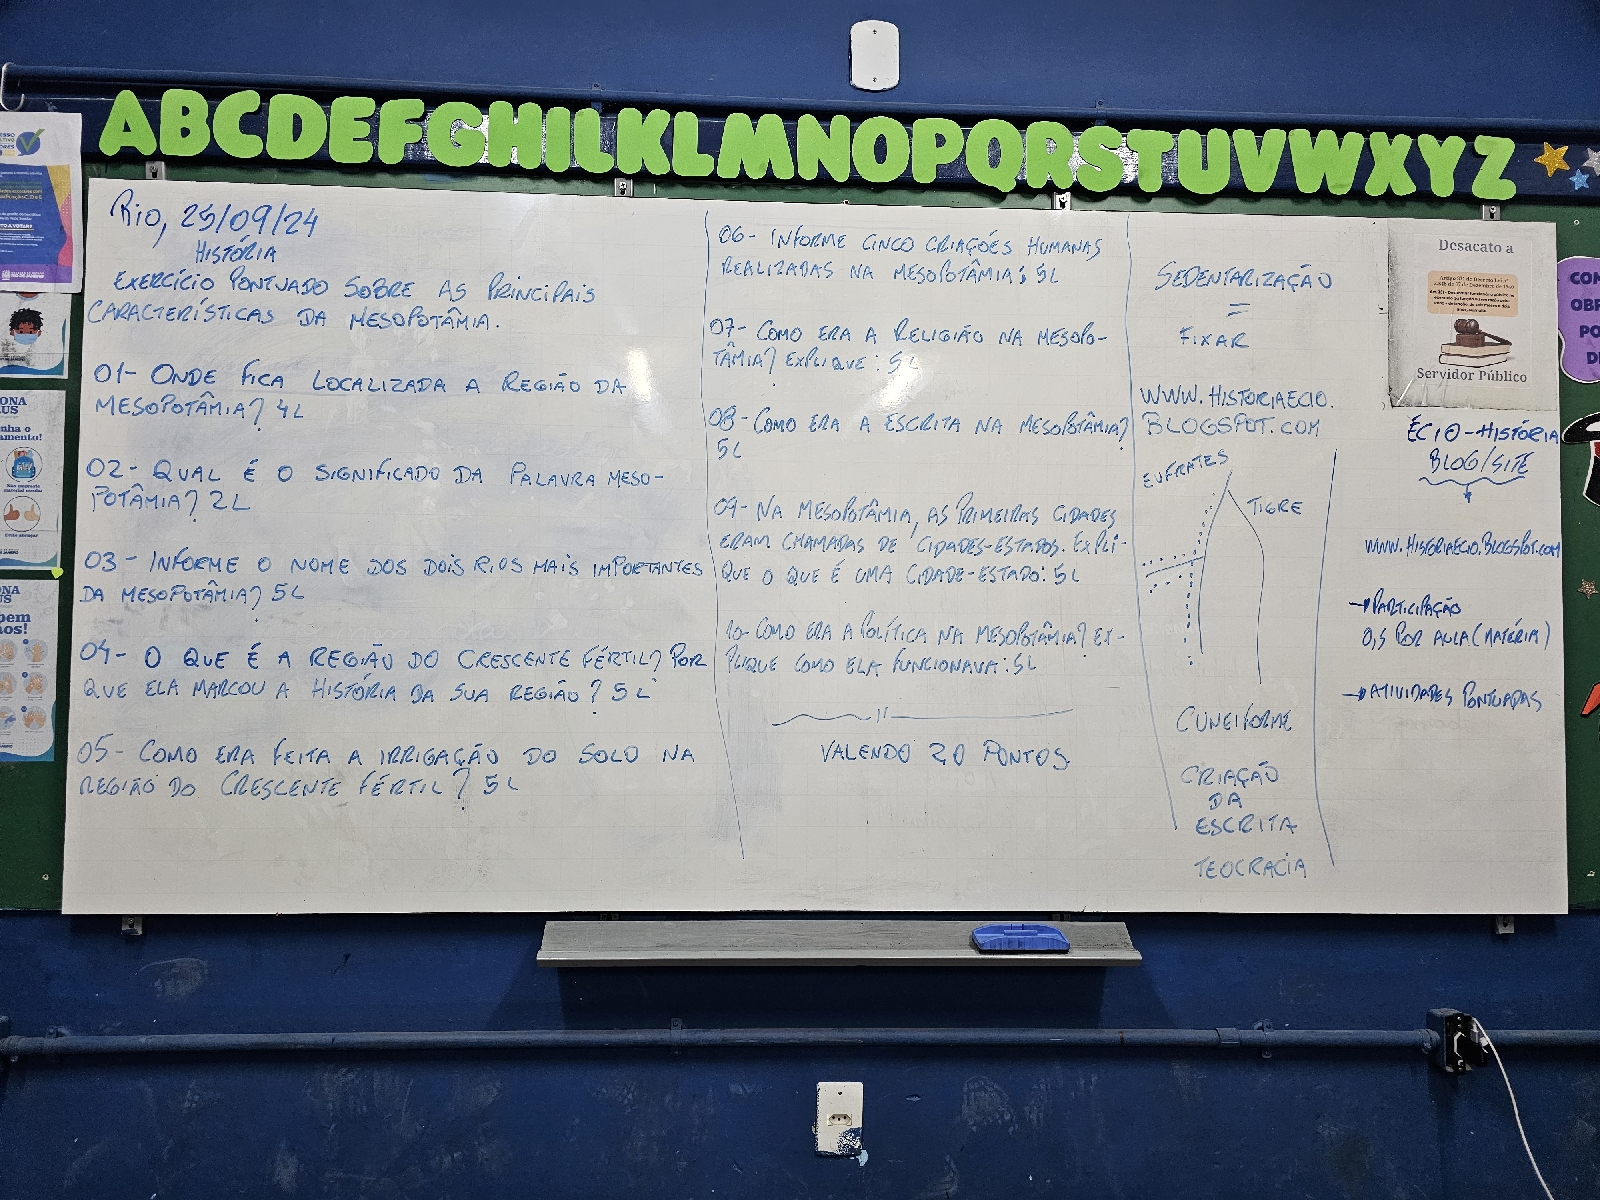 ABCDEFGHILKLMNOPQRSTUVWXYZ
Rio, 25/09/24
HISTÓRIA
EXERCÍCIO PONTUADO SOBRE AS PRINCIPAIS
CARACTERÍSTICAS DA MESOPOTÂMIA.
01- ONDE FICA LOCALIZADA A REGIÃO DA
MESOPOTÂMIA? 4L
02- QUAL É O SIGNIFICADO DA PALAVRA MESO-
POTÂMIA? 2L
03- INFORME O NOME DOS DOIS RIOS MAIS IMPORTANTES
DA MESOPOTÂMIA? 5L
04- O QUE É A REGIÃO DO CRESCENTE FÉRTIL? POR
QUE ELA MARCOU A HISTÓRIA DA SUA REGIÃO? 5L
05- COMO ERA FEITA A IRRIGAÇÃO DO SOLO NA
REGIÃO DO CRESCENTE FÉRTIL? 5L
06- INFORME CINCO CRIAÇÕES HUMANAS
REALIZADAS NA MESOPOTÂMIA: 5L
07- COMO ERA A RELIGIÃO NA MESOPO-
TÂMIA? EXPLIQUE: 5L
08- COMO ERA A ESCRITA NA MESOPOTÂMIA?
5L
09- NA MESOPOTÂMIA, AS PRIMEIRAS CIDADES
ERAM CHAMADAS DE CIDADES-ESTADOS. EXPLI-
QUE O QUE É UMA CIDADE-ESTADO: 5L
10- COMO ERA A POLÍTICA NA MESOPOTÂMIA? EX-
PLIQUE COMO ELA FUNCIONAVA: 5L
VALENDO 2,0 PONTOS.
SEDENTARIZAÇÃO
=
FIXAR
WWW.HISTORIAECIO.
BLOGSPOT.COM
EUFRATES
TIGRE
CUNEIFORME
CRIAÇÃO
DA
ESCRITA
TEOCRACIA
Desacato a
Servidor Público
ÉCIO-HISTÓRIA
BLOG/SITE
WWW.HISTORIAECIO.BLOGSPOT.COM
→PARTICIPAÇÃO
0,5 POR AULA (MATÉRIA)
→ATIVIDADES PONTUADAS